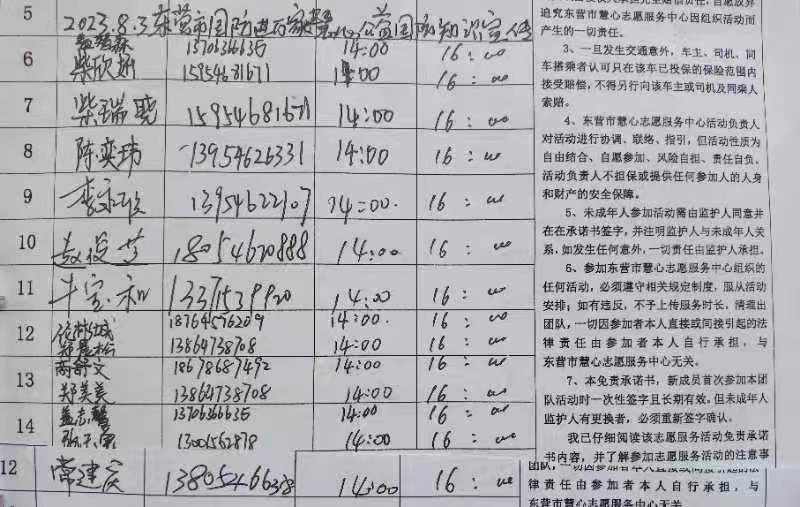 5
2023.8.3东营市国防进万家暨 公益国防知识宣传
13706366635 14:00 16:00
6
柴欣妍 15954681671 14:00 16:00
7 柴瑞晓 15954681671 14:00 16:00
8 陈奕玮 13954626331 14:00 16:00
9 13954622107 14:00 16:00
10 18054620888 14:00 16:00
11 牛宝和 13371539920 14:00 16:00
12
18764576209 14:00 16:00
13864738708 14:00 16:00
13
18678687492 14:00 16:00
郑美美 13864738708 14:00 16:00
14
孟志馨 13706366635 14:00 16:00
14:00 16:00
12 常建庆 14:00 16:00
追究东营市慧心志愿服务中心因组织活动而
产生的一切责任。
3、一旦发生交通意外，车主、司机、同
车搭乘者认可只在该车已投保的保险范围内
接受赔偿，不得另行向该车主或司机及同乘人
索赔。
4、东营市慧心志愿服务中心活动负责人
对活动进行协调、联络、指引，但活动性质为
自由结合、自愿参加、风险自担、责任自负、
活动负责人不担保或提供任何参加人的人身
和财产的安全保障。
5、未成年人参加活动需由监护人同意并
在在承诺书签字，并注明监护人与未成年人关
系，如发生任何意外，一切责任由监护人承担。
6、参加东营市慧心志愿服务中心组织的
任何活动，必须遵守相关规定制度，服从活动
安排；如有违反，不予上传服务时长，清理出
团队，一切因参加者本人直接或间接引起的法
律责任由参加者本人自行承担，与
东营市慧心志愿服务中心无关。
7、本免责承诺书，新成员首次参加本团
队活动时一次性签字且长期有效，但未成年人
监护人有更换者，必须重新签字确认。
我已仔细阅读该志愿服务活动免责承诺
书内容，并了解参加志愿服务活动的注意事
团队，一切因参加者本人直接或间接引起的法
律责任由参加者本人自行承担，与
东营市慧心志愿服务中心无关